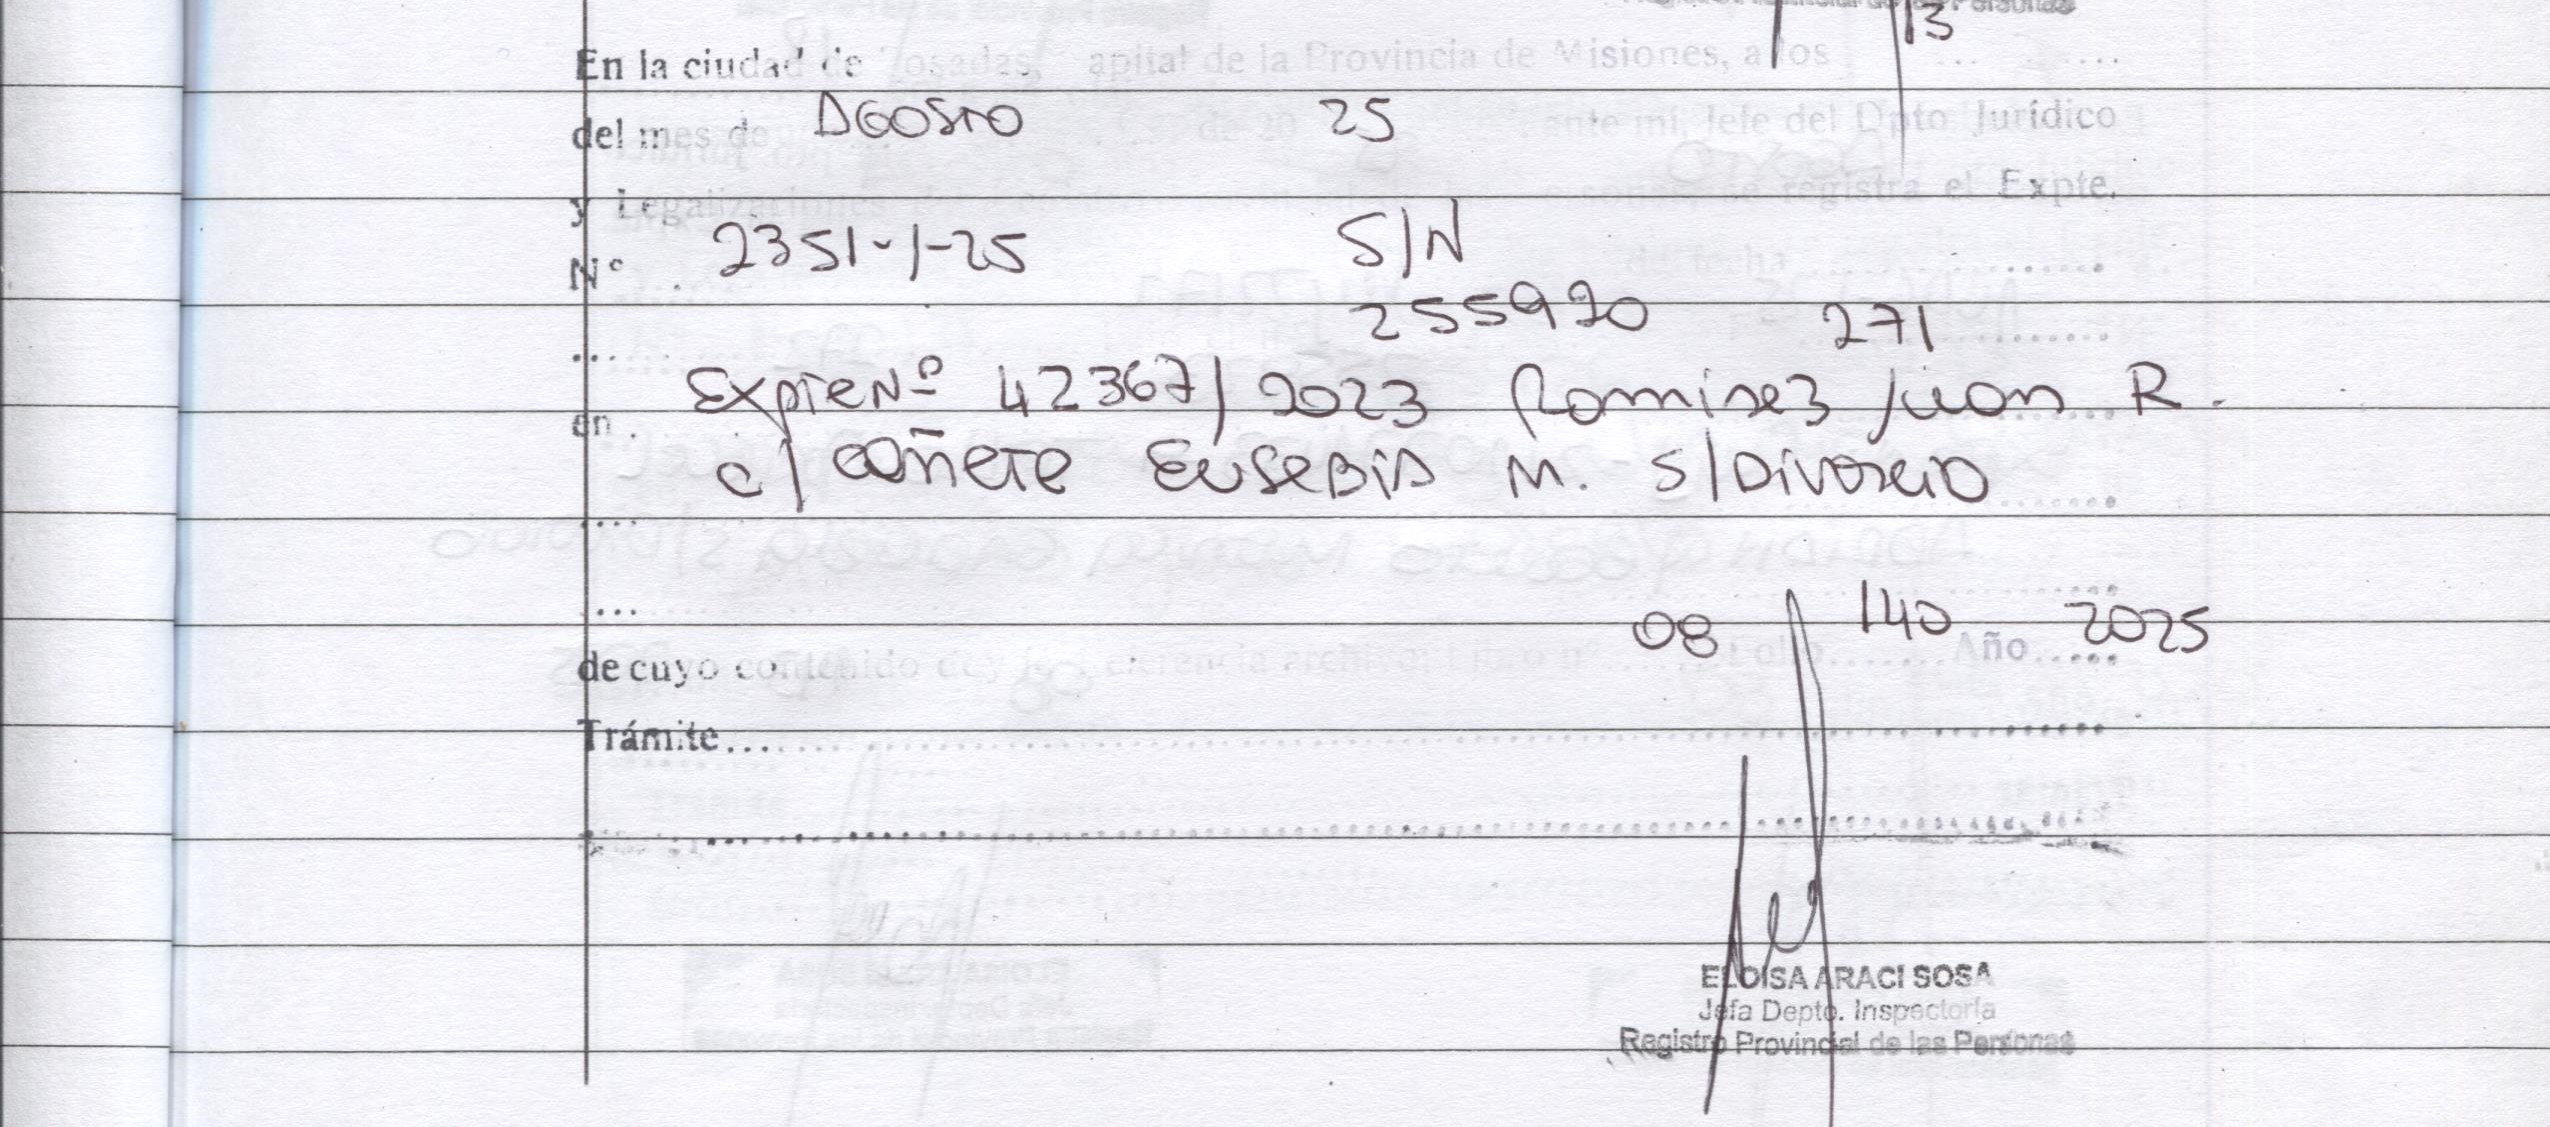 Registro Provincial de las Personas
13
En la ciudad de Posadas, Capital de la Provincia de Misiones, a los
del mes de AGOSTO de 20 25 ante mi, Jefe del Dpto Jurídico
y Legalizaciones se registra el Expte.
N° 2351-1-25 S/N de fecha
255920 271
en Expte Nº 42367/2023 Ramirez Juan R.
c/ Cañete Eusebia M. S/Divorcio
08 140 2025
de cuyo contenido doy fe. Referencia archivo: Libro nº Folio Año
Trámite
ELOISA ARACI SOSA
Jefa Depto. Inspectoría
Registro Provincial de las Personas